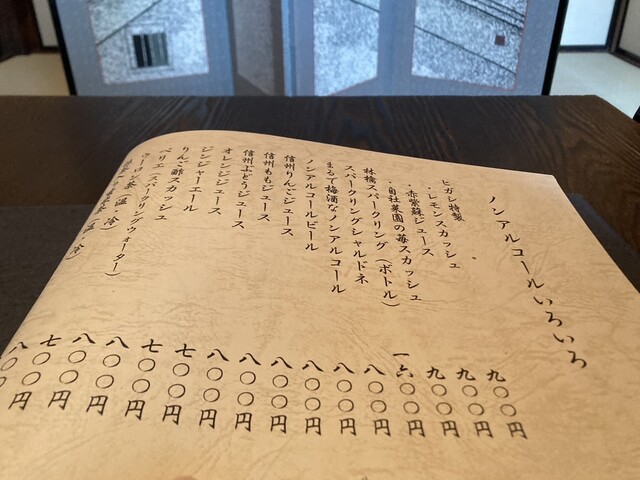 ノンアルコールいろいろ
ヒガシ特製
・レモンスカッシュ 九〇〇円
・赤紫蘇ジュース 九〇〇円
・自社菜園の苺スカッシュ 九〇〇円
林檎スパークリング（ボトル） 一六〇〇円
スパークリングシャルドネ 八〇〇円
まるで梅酒なノンアルコール 八〇〇円
ノンアルコールビール 八〇〇円
信州りんごジュース 八〇〇円
信州ももジュース 八〇〇円
信州ぶどうジュース 八〇〇円
オレンジジュース 七〇〇円
ジンジャーエール 七〇〇円
りんご酢スカッシュ 八〇〇円
ペリエ（スパークリングウォーター） 八〇〇円
ウーロン茶（温・冷） 七〇〇円
（温・冷） 八〇〇